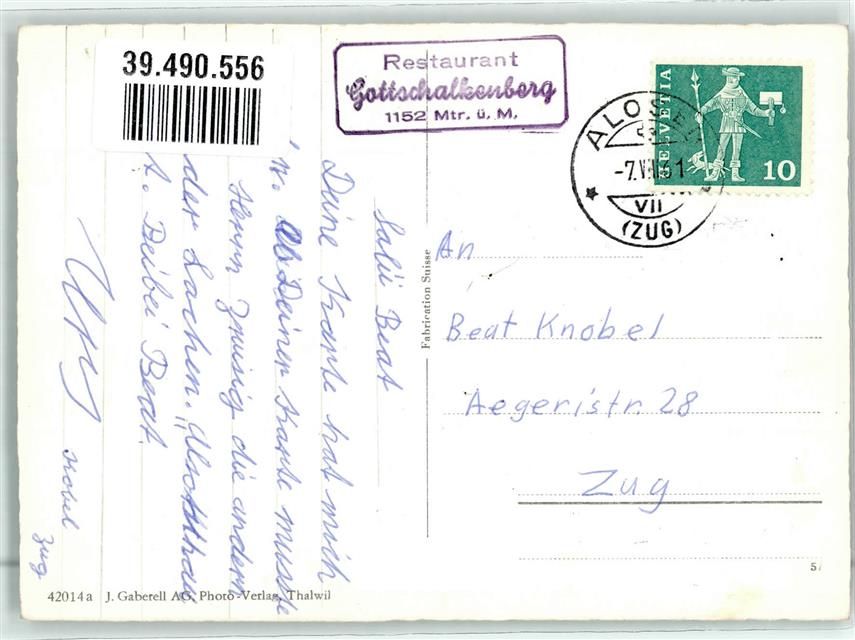 39.490.556
Restaurant
Gottschalkenberg
1152 Mtr. ü. M.
HELVETIA
10
ALOSEN
-7.VII.61
VII
(ZUG)
Salü Beat
Deine Karte hat mich
Deiner Karte musste
Herrn die andern
der Lachen.
A. Beibei Beat.
Zug
Fabrication Suisse
An
Beat Knobel
Aegeristr. 28
Zug
42014a J. Gaberell AG, Photo-Verlag, Thalwil